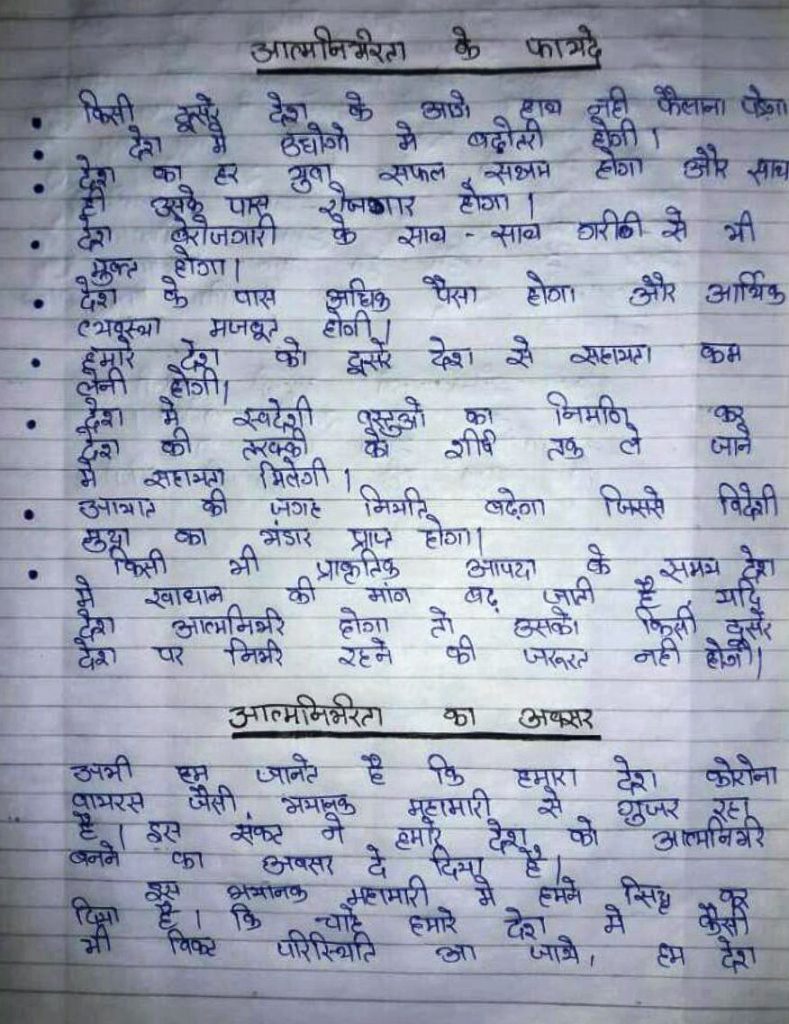 आत्मनिर्भरता के फायदे
किसी दूसरे देश के आगे हाथ नही फैलाना पड़ेगा
देश मे उद्योगो मे बढ़ोतरी होगी।
देश का हर युवा सफल, सक्षम होगा और साथ
ही उसके पास रोजगार होगा।
देश बेरोजगारी के साथ - साथ गरीबी से भी
मुक्त होगा।
देश के पास अधिक पैसा होगा और आर्थिक
व्यवस्था मजबूत होगी।
हमारे देश को दूसरे देश से सहायता कम
लेनी होगी।
देश मे स्वदेशी वस्तुओ का निर्माण कर
देश की तरक्की को शीर्ष तक ले जाने
मे सहायता मिलेगी।
आयात की जगह निर्यात बढ़ेगा जिससे विदेशी
मुद्रा का भंडार प्राप्त होगा।
किसी भी प्राकृतिक आपदा के समय देश
मे खाधान की मांग बढ़ जाती है, यदि
देश आत्मनिर्भर होगा तो उसको किसी दूसरे
देश पर निर्भर रहने की जरूरत नही होगी।
आत्मनिर्भरता का अवसर
अभी हम जानते है कि हमारा देश कोरोना
वायरस जैसी भयानक महामारी से गुजर रहा
है। इस संकट ने हमारे देश को आत्मनिर्भर
बनने का अवसर दे दिया है।
इस भयानक महामारी मे हमने सिद्ध कर
दिया है। कि चाहे हमारे देश मे कैसी
भी विकट परिस्थिति आ जाये, हम देश